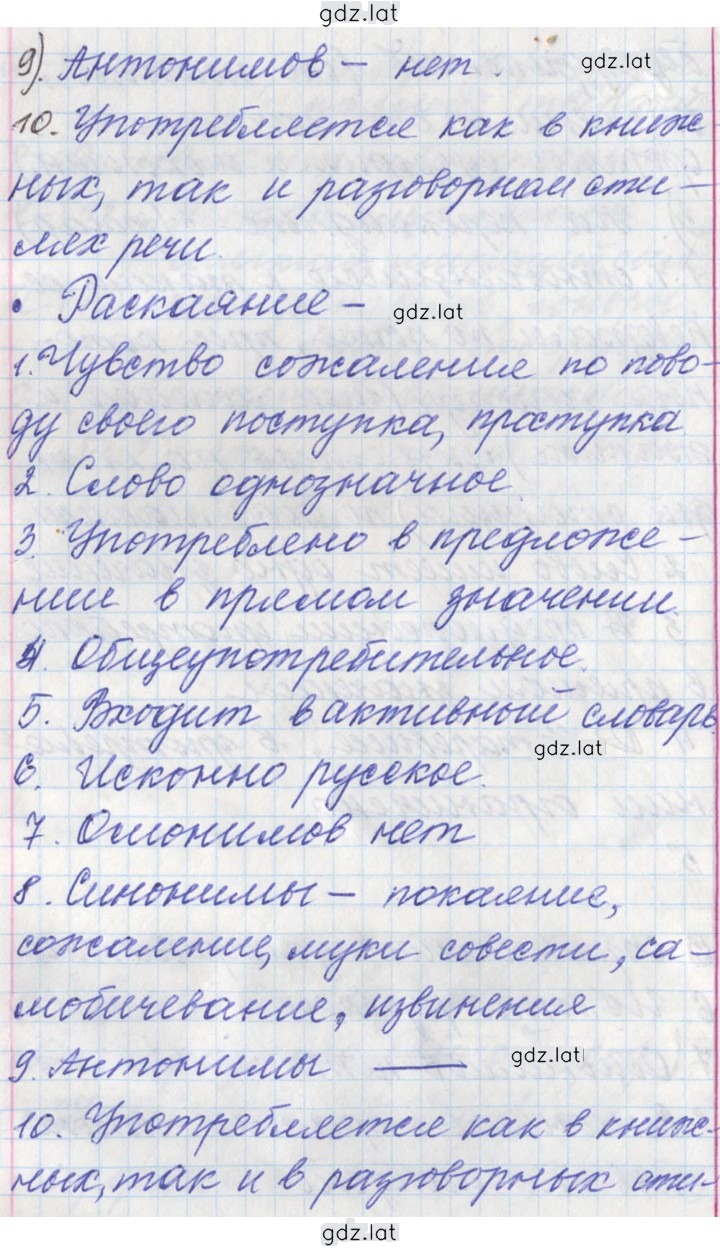 gdz.lat
9). Антонимов – нет.
gdz.lat
10. Употребляется как в книж-
ных, так и разговорном сти-
лях речи.
• Раскаяние –
gdz.lat
1. Чувство сожаления по пово-
ду своего поступка, проступка
2. Слово однозначное
3. Употреблено в предложе-
нии в прямом значении.
4. Общеупотребительное.
5. Входит в активный словарь.
gdz.lat
6. Исконно русское.
7. Омонимов нет
8. Синонимы – покаяние,
сожаление, муки совести, са-
мобичевание, извинения
9. Антонимы —
gdz.lat
10. Употребляется как в книж-
ных, так и в разговорных сти-
gdz.lat